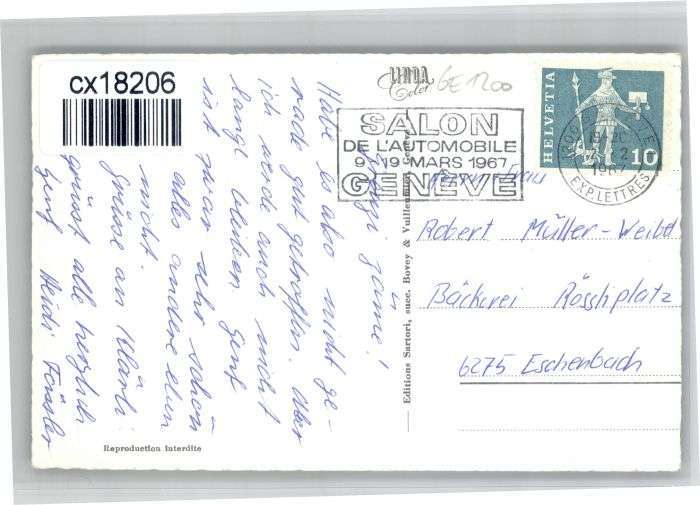 cx18206
LINDA
Color
GE 1200
SALON
DE L'AUTOMOBILE
9-19 MARS 1967
GENÈVE
HELVETIA
10
1967
EXP. LETTRES
Robert Müller-Weibel
Bäckerei Rössliplatz
6275 Eschenbach
Editions Sartori, succ. Bovey & Vuilleumier, Genève
Reproduction interdite
zäme!
Habe es also nicht ge-
rade gut getroffen. Aber
ich werde auch nicht
lange bleiben. Genf
ist zwar sehr schön
alles andere eben
nicht.
Grüsse an Klärli
grüsst alle herzlich
Genf Heidi Forster